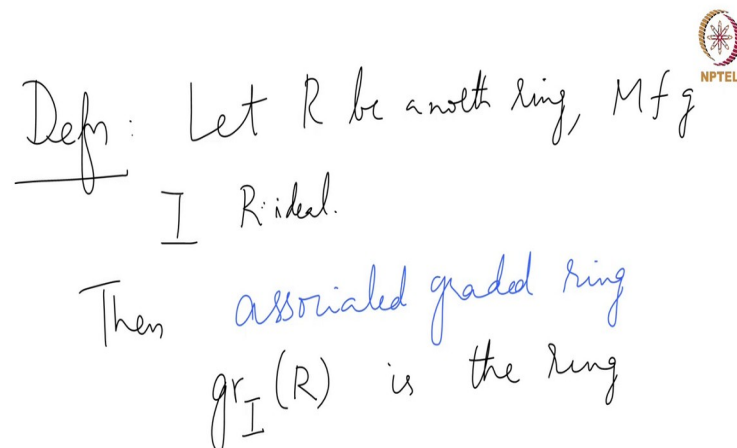 NPTEL
Defn: Let R be a noeth ring, M f g
I R-ideal.
Then associated graded ring
gr_I (R) is the ring